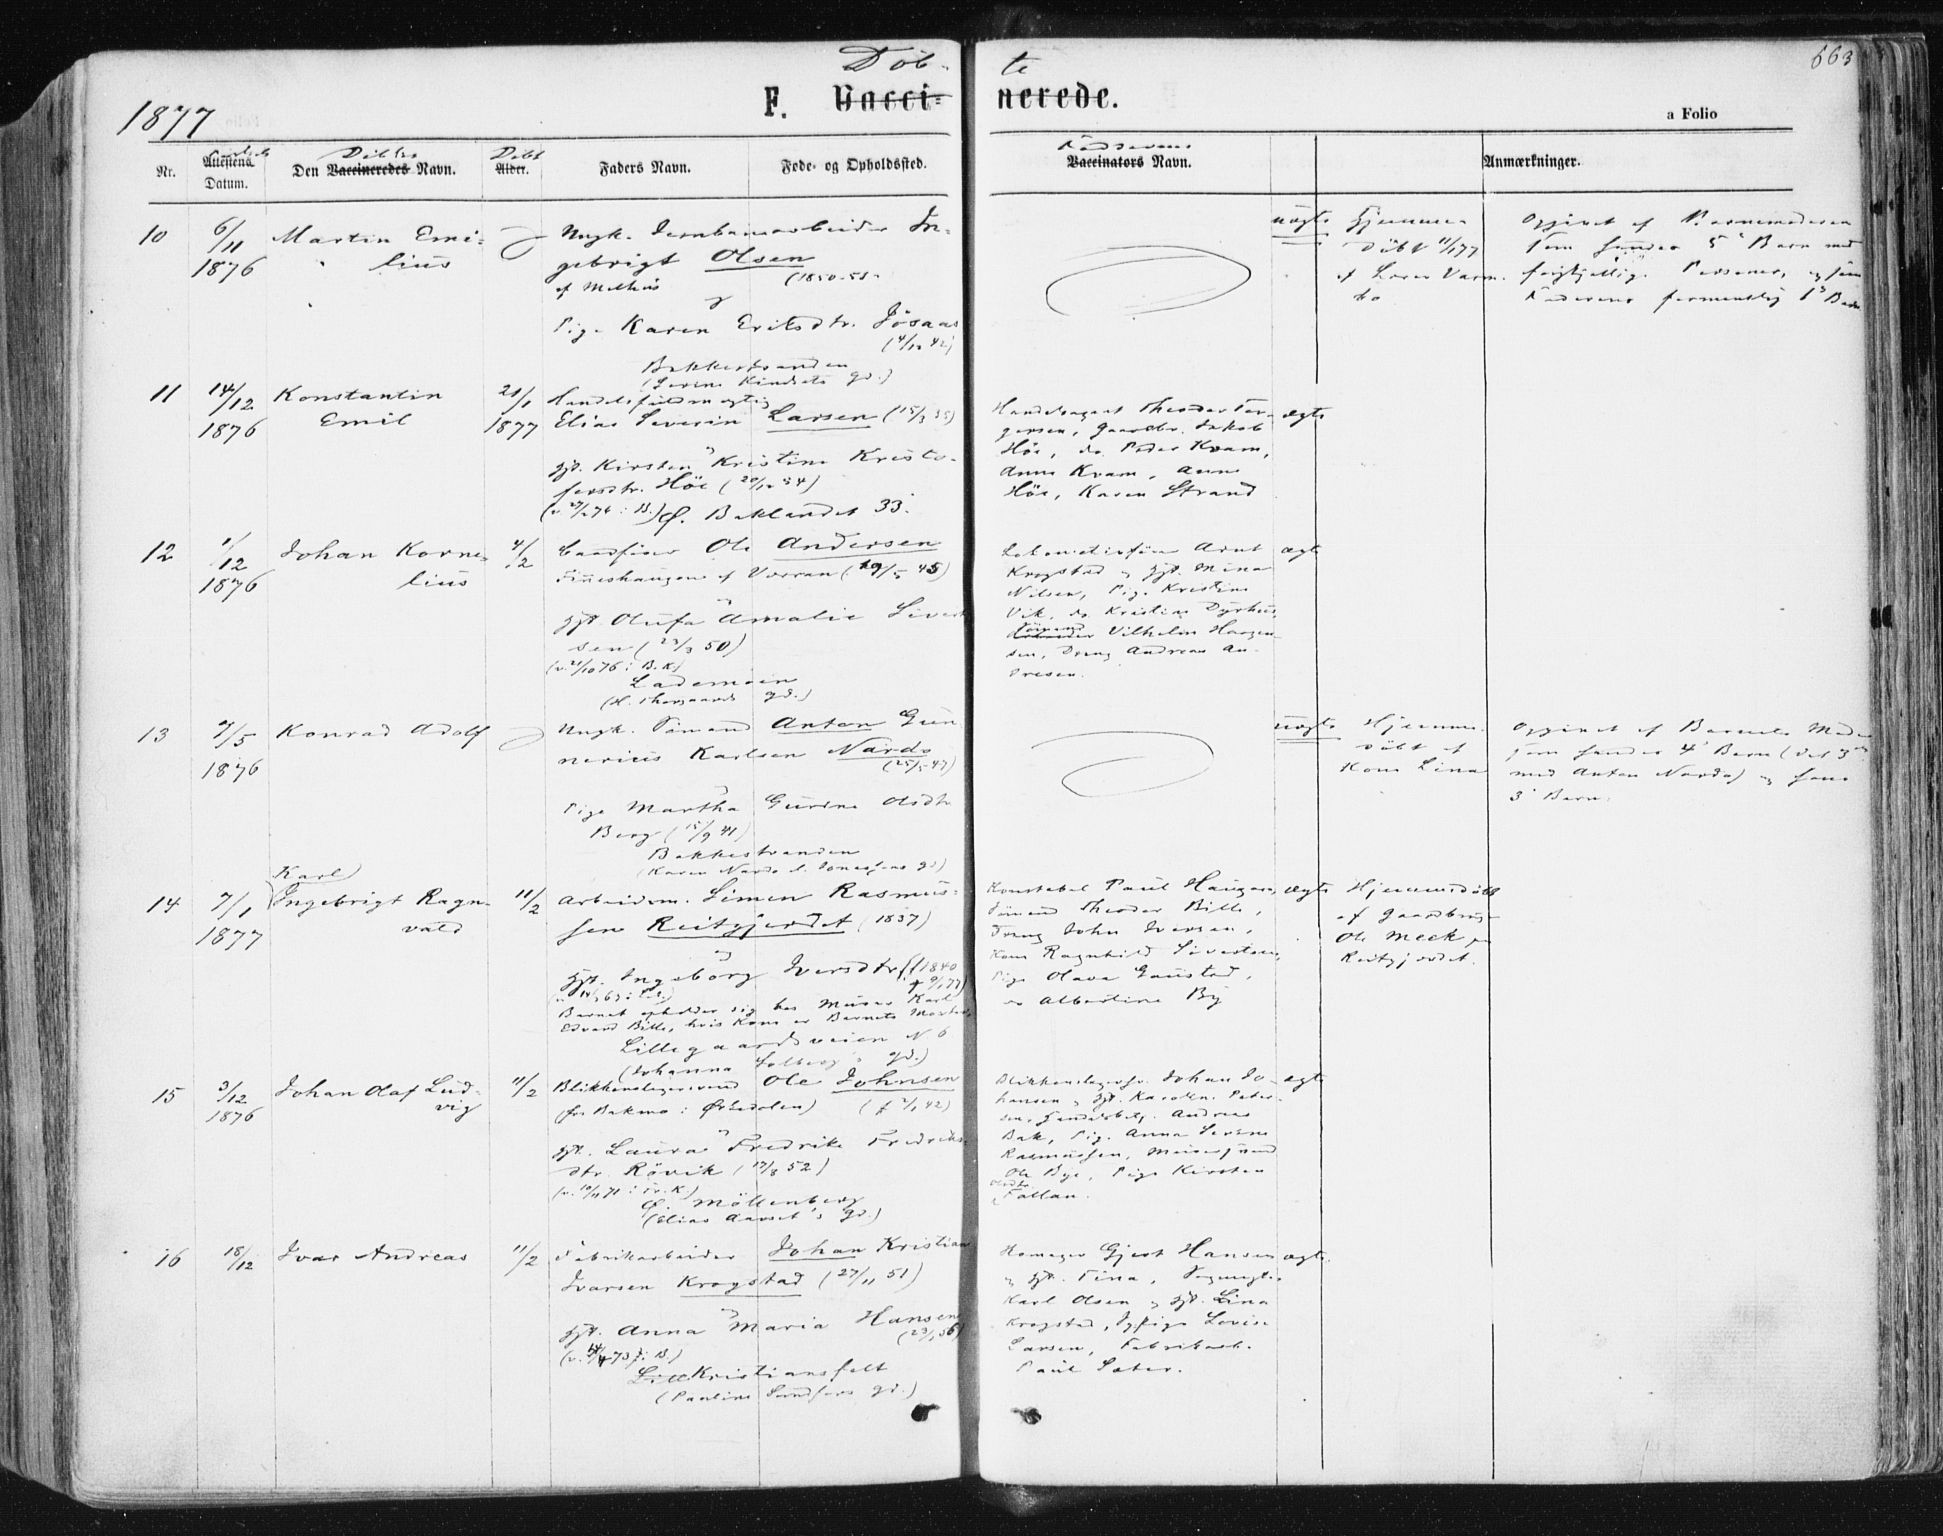 Döb- te
663
1877
F. Vacci- nerede.
a Folio
Nr.
Attestens Datum.
Den Vaccineredes Navn.
Döbtes
Döbt
Alder.
Faders Navn.
Føde- og Opholdssted.
Fadderens
Vaccinators Navn.
Anmærkninger.
10 6/11 1876
Martin Emi-
lius
Ungk. Jernbanearbeider In-
gebrigt Olsen
af Melhus (1850-51
og
Pige Karen Eriksdtr. Jösaas
(4/12 42)
Bakkestranden
(Serine Kindsets gd.)
uægte
Hjemme-
döbt 11/1 77
af Lars Varm-
bo
Opgivet af Barnemoderen
som hendes 5' Barn med
forskjellige Personer, og som
Faderens formentlig 1' Barn
11 14/12 1876
Konstantin
Emil
21/1 1877
Handelsfuldmægtig
Elias Severin Larsen (15/3 35)
og
gjt. Kirsten Kristine Kristo-
fersdtr. Höe (20/12 54)
(v. 27/2 76 i B.) Ø. Baklandet 33.
Handelsagent Theodor Tor-
gersen, Gaardbr. Jakob
Höe, do. Peder Kvam,
Anne Kvam, Anne
Höe, Karen Strand
ægte
12 1/12 1876
Johan Korne-
lius
4/2
Ole Andersen
Fineshaugen af Værran (19/5 45)
og
gjt. Olufa Amalie Sivert-
sen (23/3 50)
(v. 21/10 76 i B.K.)
Lademoen
(H. Thorgaards gd.)
Lokomotivförer Arnt
Krogstad og gjt. Mina
Nilsen, Pige Kristine
Vik, do Kristine Dyrhus,
Sömand
Arbeider Vilhelm Haagen-
sen, Dreng Andreas An-
dresen.
ægte
13 9/5 1876
Konrad Adolf
Ungk. Sömand Anton Gun
nerius Karlsen Nardo
(25/5 47)
og
Pige Martha Gurine Olsdtr
Berg (15/9 41)
Bakkestranden
(Karen Nardo gd)
uægte
Hjemme-
döbt af
Kone Lina
Opgivet af Barnets Moder
som hendes 4' Barn (det 3'
med Anton Nardo) og hans
3' Barn.
14 7/1 1877
Karl
Ingebrigt Ragn-
vald
11/2
Arbeidsm. Simen Rasmus-
sen Reitgjerdet (1837)
og
gjt. Ingeborg Iversdtr (1840
Barnet opholder sig hos Murer Karl
Edvard Bille, hvis Kone er Barnets Moster
Lillegaardsveien N 6
(Johanna Solberg's gd.)
Konstabel Paul Haugan,
Sömand Theodor Bille,
Dreng John Iversen,
Kone Ragnhild Sivertsen,
Pige Olava Gaustad,
do Albertine By
ægte
Hjemmedöbt
af Gaardbruger
Ole Meek paa
Reitgjerdet.
15 3/12 1876
Johan Olaf Lud-
vig
11/2
Blikkenslagersvend Ole Johnsen
(fra Bakmo i Ørkedalen) (f 2/1 42)
og
gjt. Laura Fredrike Fredriks-
dtr. Rövik (17/8 52)
(v. 10/11 71 i Fr. K.)
Ø. Möllenberg
(Elias Aarset's gd.)
Blikkenslagersv. Johan Jo-
hansen og gjt. Karoline Peter-
sen, Handelsbetj. Andreas
Bak, Pige Anna Serine
Rasmussen, Murersvend
Ole Bye, Pige Kirsten
Olsdtr.
Fallan.
ægte
16 18/12
Ivar Andreas
11/2
Fabrikarbeider Johan Kristian
Ivarsen Krogstad (27/11 51)
og
gjt. Anna Maria Hansen
(23/1 56)
Lill Kristiansfelt
(Pauline Sundfærs gd.)
Homager Gjert Hansen
og gjt. Tina,
Karl Olsen og gjt. Lina
Krogstad, Sypige Lovise
Larsen, Fabrikarb.
Paul Sæter.
ægte